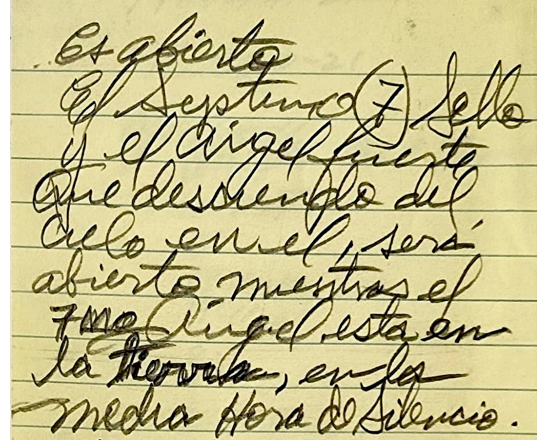 Es abierto
El Septimo (7) Sello
y el angel fuerte
que desciende del
cielo en el, será
abierto mientras el
7mo Angel esta en
la tierra, en la
media Hora de Silencio.